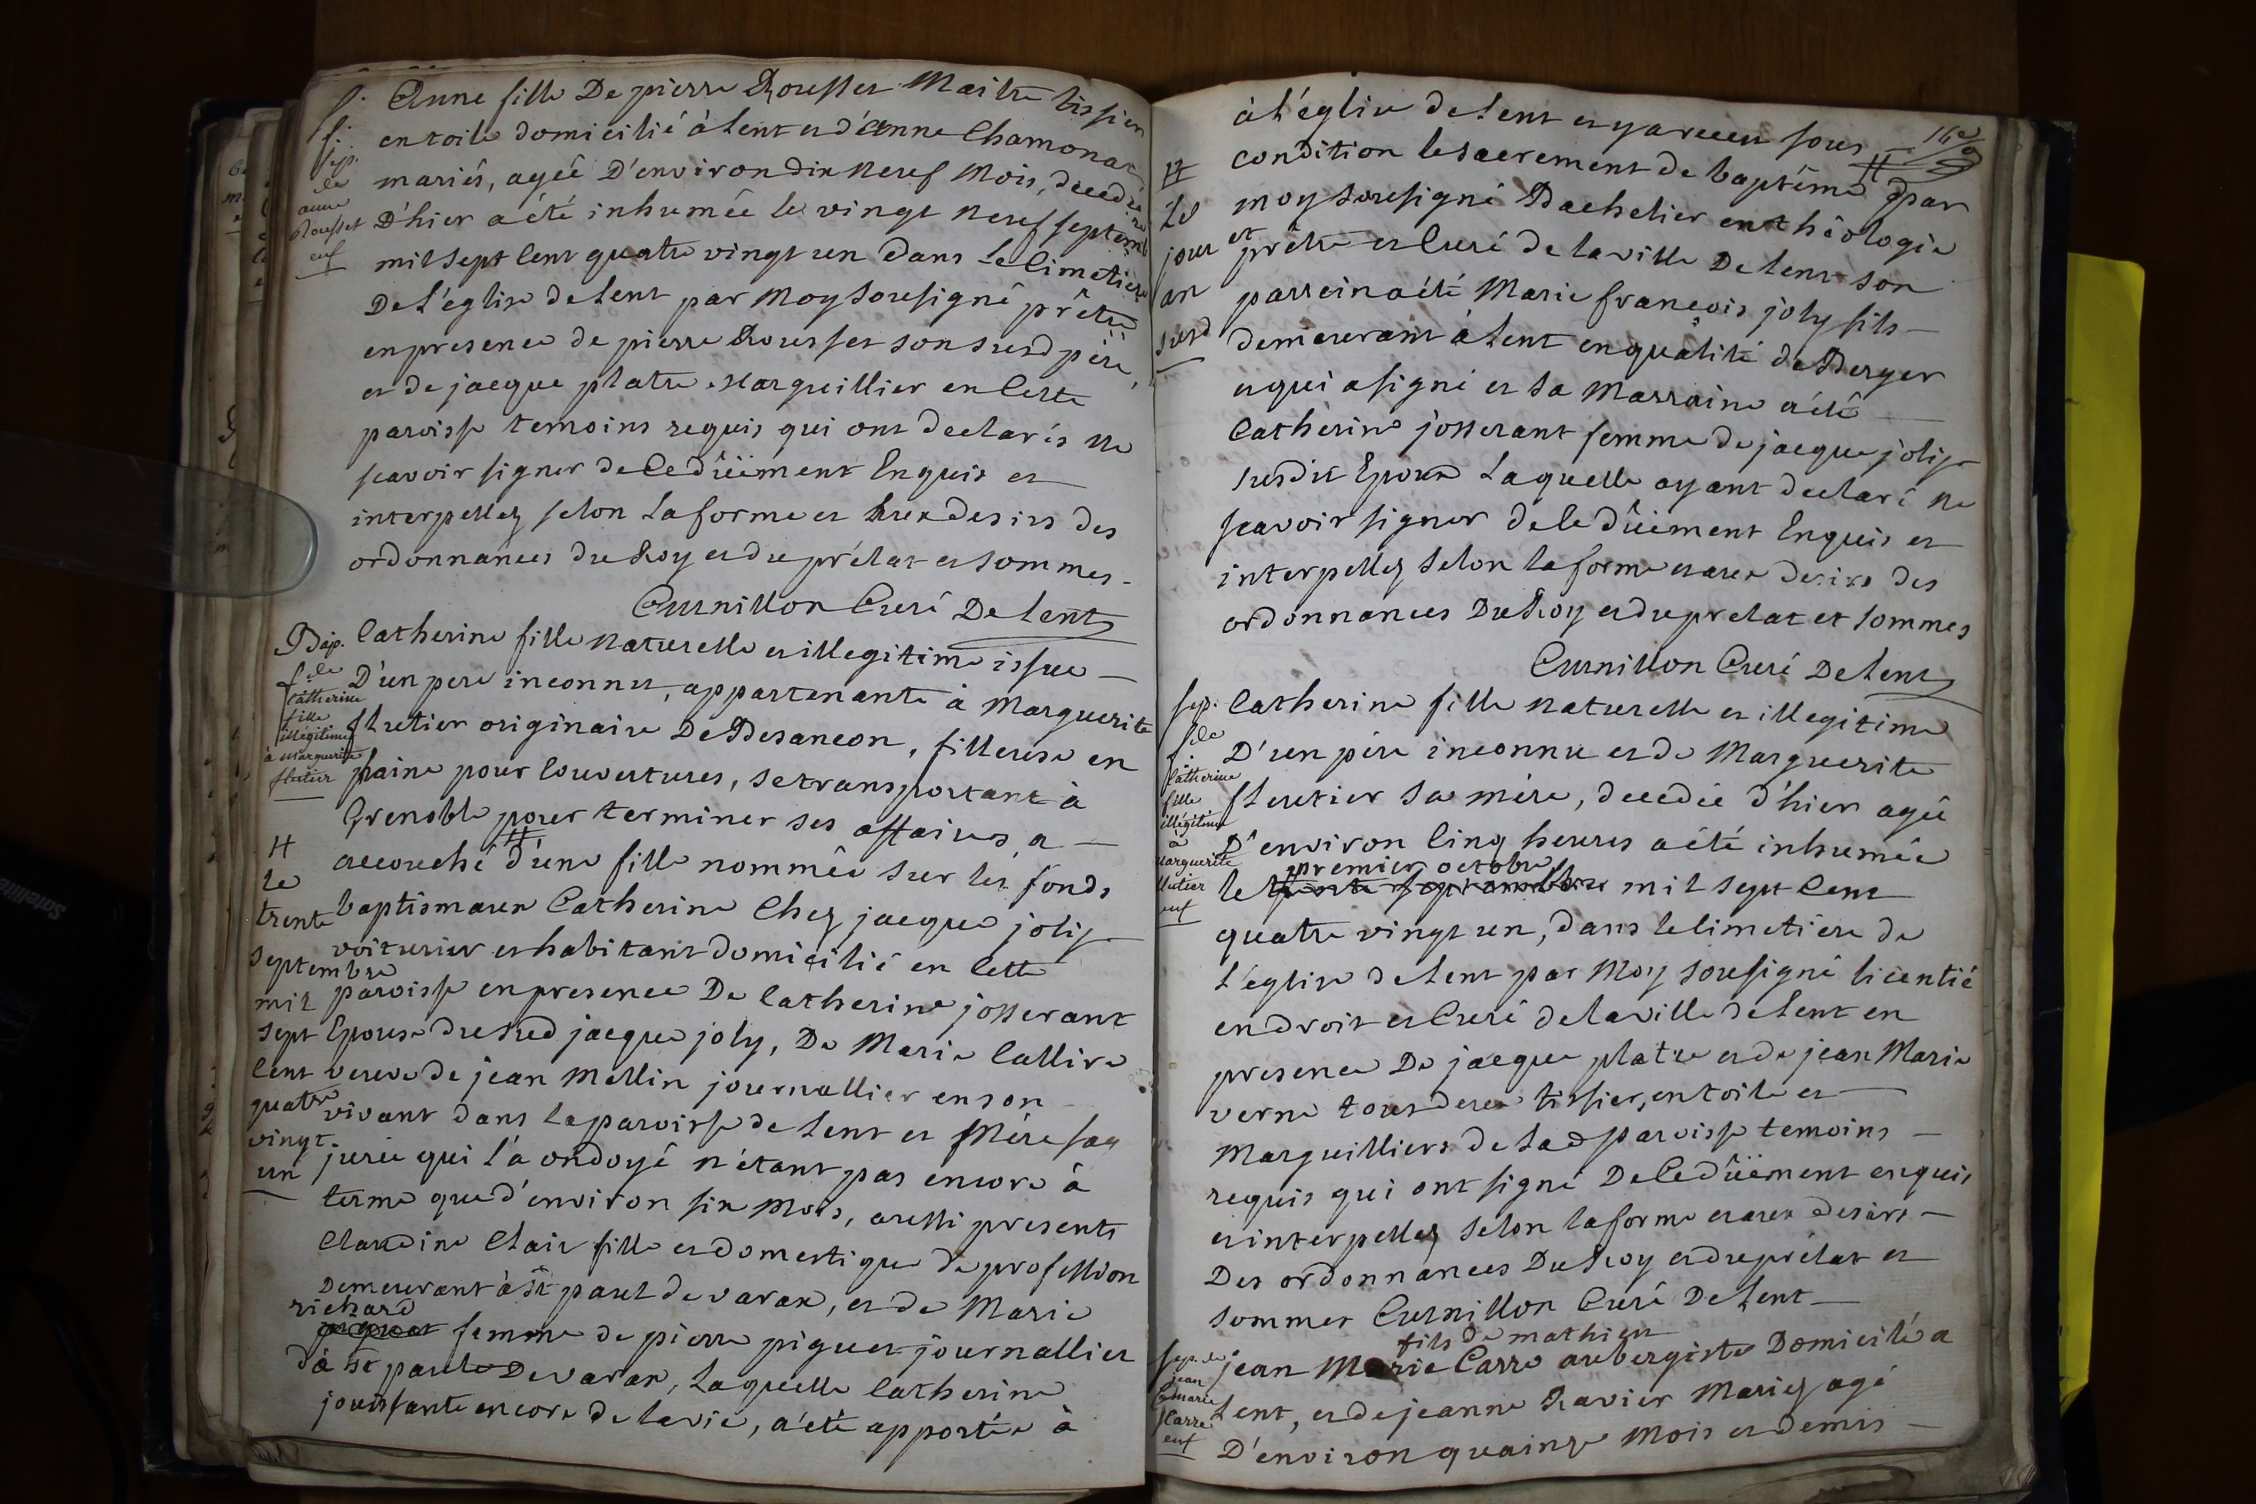 f.
f.
sep.
de
anne
Rousset
enf
Anne fille De pierre Rousset Maitre tissier
en toile domicilié à Lent et d'Anne Chamonar
mariés, agée D'environ dix neuf Mois, decedée
D'hier a été inhumée le vingt neuf septembre
mil sept Cent quatre vingt un Dans Le Cimetiere
De L'église de Lent par Moy sousigné prêtre
en presence de pierre Rousset son susd père,
et de jacque platre Marguillier en Cette
paroisse temoins requis qui ont declarés ne
scavoir signer de Ce düëment Enquis et
interpellez selon La forme et aux desirs des
ordonnances du Roy et du prélat et sommes
Curnillon Curé De Lent
Bap.
f. de
Catherine
fille
illégitime
à Marguerite
flutier
Catherine fille naturelle et illegitime issue
D'un pere inconnu, appartenante à Marguerite
flutier originaire De Besancon, filleuse en
plaine pour Couvertures, se transportant à
Grenoble pour terminer ses affaires, a
accouché # d'une fille nommée sur les fonds
baptismaux Catherine Chez jacque joly
voiturier et habitant domicilié en Cette
paroisse en presence De Catherine josserant
Epouse du susd jacque joly, De Marie Callire
veuve de jean Mellin journallier en son
vivant dans la paroisse de Lent et Mère sag
jurée qui l'a ondoyé n'étant pas encore à
terme que d'environ six mois, aussi presents
Claudine Clair fille et domestique de profession
Demeurant à st paul de varax, et de Marie
richard
piquet femme de pierre piquet journallier
d à st paul De varax, Laquelle Catherine
jouissante encore de la vie, a été apportée à
#
le
trente
septembre
mil
sept
Cent
quatre
vingt
un
16e
à L'église de Lent et y a receu sous
condition le sacrement de baptême # par
moy sousigné Bachelier en théologie
et prêtre et Curé de la ville De Lent son
parrein a été Marie françois joly fils
demeurant à Lent en qualité de Berger
et qui a signé et sa Marraine a été
Catherine josserant femme de jacque joly
susdit Epoux Laquelle ayant declaré ne
scavoir signer de Ce düëment Enquis et
interpellez selon la forme et aux desirs des
ordonnances Du Roy et du prelat et sommes
Curnillon Curé De Lent
#
led
jour
an
susd
sep.
f. de
Catherine
fille
illégitime
à
Marguerite
flutier
enf
Catherine fille naturelle et illegitime
D'un père inconnu et de Marguerite
fleutier sa mère, decedée d'hier agée
D'environ Cinq heures a été inhumée
premier octobre
le trente septembre mil sept Cent
quatre vingt un, dans le Cimetière de
L'église de Lent par Moy sousigné licentié
en droit et Curé de la ville de Lent en
presence De jacque platre et de jean Marie
verne tous deux tissier, en toile et
Marguilliers de Lad paroisse temoins
requis qui ont signé De Ce düëment enquis
et interpellez selon la forme et aux desirs
Des ordonnances Du Roy et du prélat et
sommes Curnillon Curé De Lent
sep. de
jean
marie
Carre
enf
fils de mathieu
jean Marie Carre aubergiste Domicilié a
Lent, et de jeanne Ravier Mariez agé
D'environ quainze Mois et demis